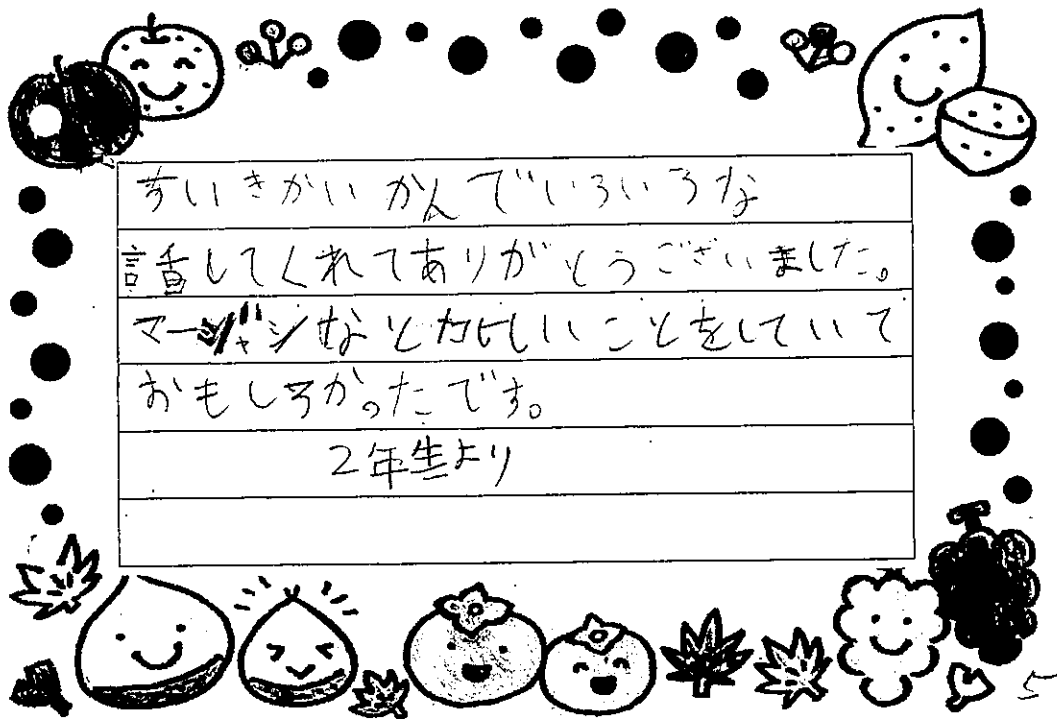 すいきかいかんでいろいろな
話してくれてありがとうございました。
マージャンなど ことをしていて
おもしろかったです。
2年生より
5